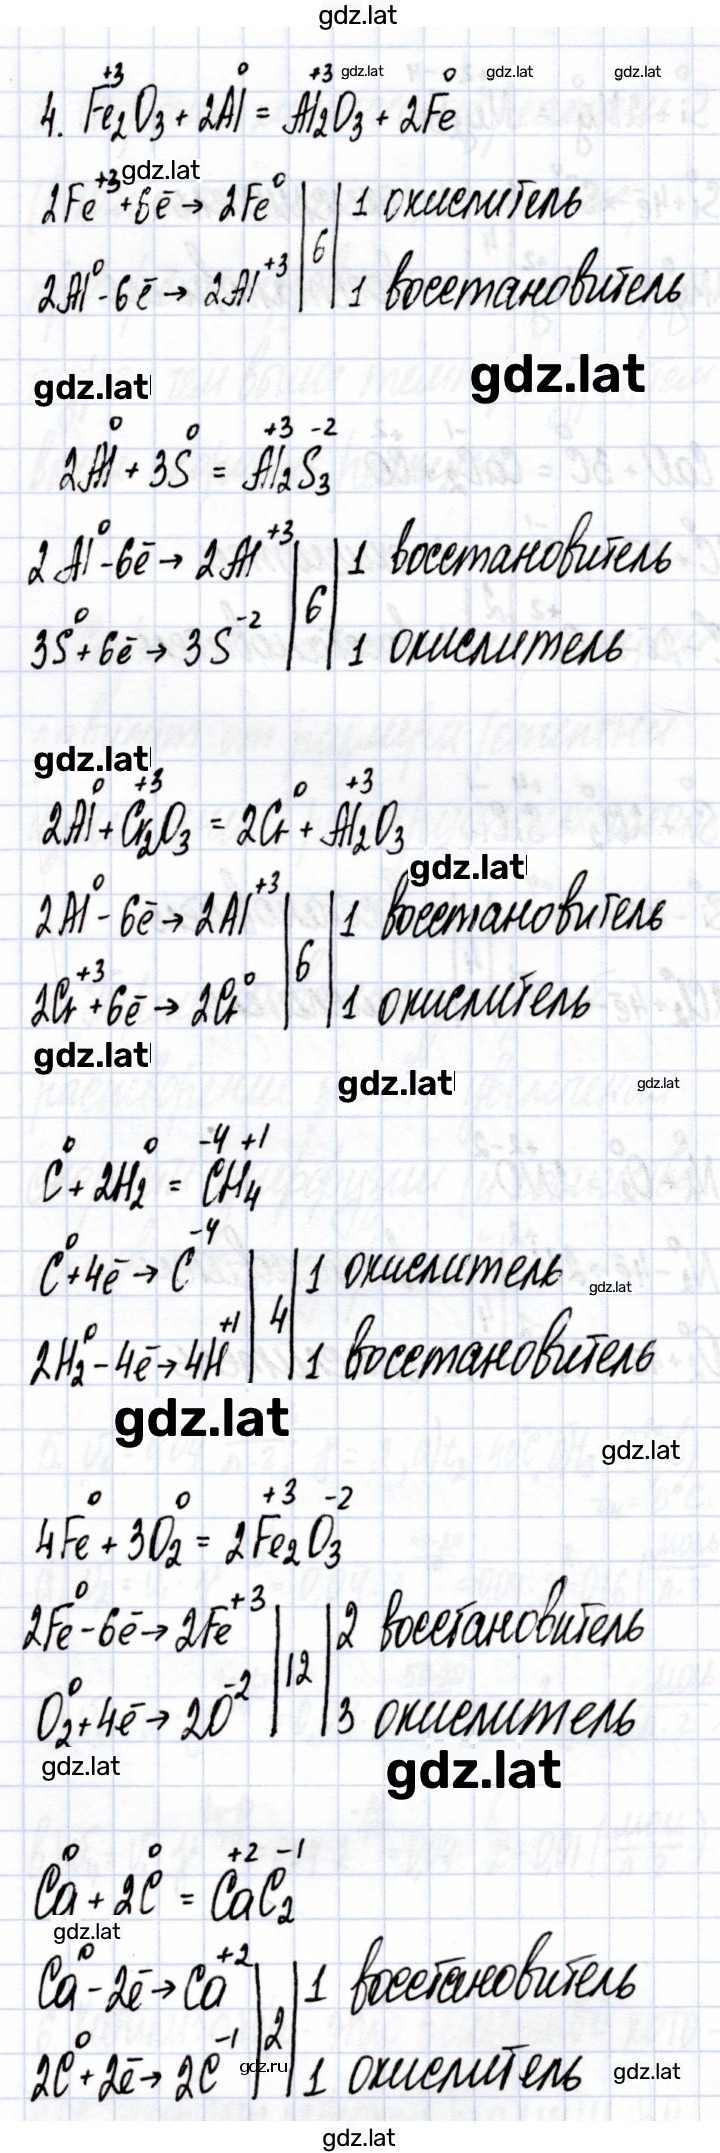 gdz.lat
+3 0 +3 gdz.lat 0 gdz.lat gdz.lat
4. Fe2O3 + 2Al = Al2O3 + 2Fe
gdz.lat
2Fe+3 + 6ē → 2Fe0 | 6 | 1 окислитель
2Al0 - 6ē → 2Al+3 | 1 восстановитель
gdz.lat gdz.lat
0 0 +3 -2
2Al + 3S = Al2S3
2Al0 - 6ē → 2Al+3 | 6 | 1 восстановитель
3S0 + 6ē → 3S-2 | 1 окислитель
gdz.lat
0 +3 0 +3
2Al + Cr2O3 = 2Cr + Al2O3
gdz.lat
2Al0 - 6ē → 2Al+3 | 6 | 1 восстановитель
2Cr+3 + 6ē → 2Cr0 | 1 окислитель
gdz.lat gdz.lat gdz.lat
0 0 -4 +1
C + 2H2 = CH4
C0 + 4ē → C-4 | 4 | 1 окислитель
gdz.lat
2H20 - 4ē → 4H+1 | 1 восстановитель
gdz.lat gdz.lat
0 0 +3 -2
4Fe + 3O2 = 2Fe2O3
2Fe0 - 6ē → 2Fe+3 | 12 | 2 восстановитель
O20 + 4ē → 2O-2 | 3 окислитель
gdz.lat gdz.lat
0 0 +2 -1
Ca + 2C = CaC2
gdz.lat
Ca0 - 2ē → Ca+2 | 2 | 1 восстановитель
2C0 + 2ē → 2C-1 | 1 окислитель
gdz.ru gdz.lat
gdz.lat